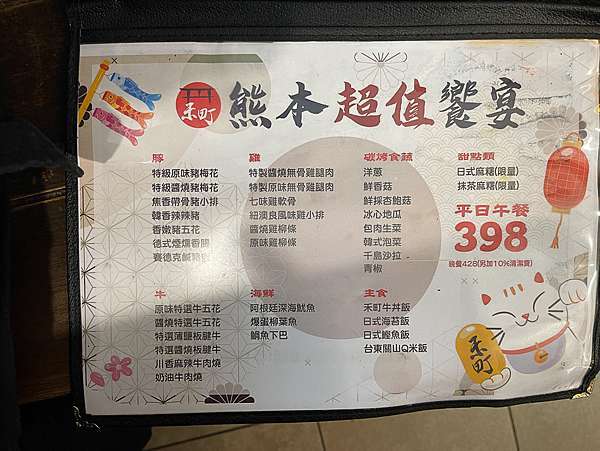 禾町
熊本超值饗宴
豚
特級原味豬梅花
特級醬燒豬梅花
焦香帶骨豬小排
韓香辣辣豬
香嫩豬五花
德式煙燻香腸
賽德克鹹豬肉
雞
特製醬燒無骨雞腿肉
特製原味無骨雞腿肉
七味雞軟骨
紐澳良風味雞小排
醬燒雞柳條
原味雞柳條
碳烤食蔬
洋蔥
鮮香菇
鮮採杏鮑菇
冰心地瓜
包肉生菜
韓式泡菜
千島沙拉
青椒
甜點類
日式麻糬(限量)
抹茶麻糬(限量)
平日午餐
398
晚餐428(另加10%清潔費)
牛
原味特選牛五花
醬燒特選牛五花
特選薄鹽板腱牛
特選醬燒板腱牛
川香麻辣牛肉燒
奶油牛肉燒
海鮮
阿根廷深海魷魚
爆蛋柳葉魚
鯛魚下巴
主食
禾町牛丼飯
日式海苔飯
日式鰹魚飯
台東關山Q米飯
禾町